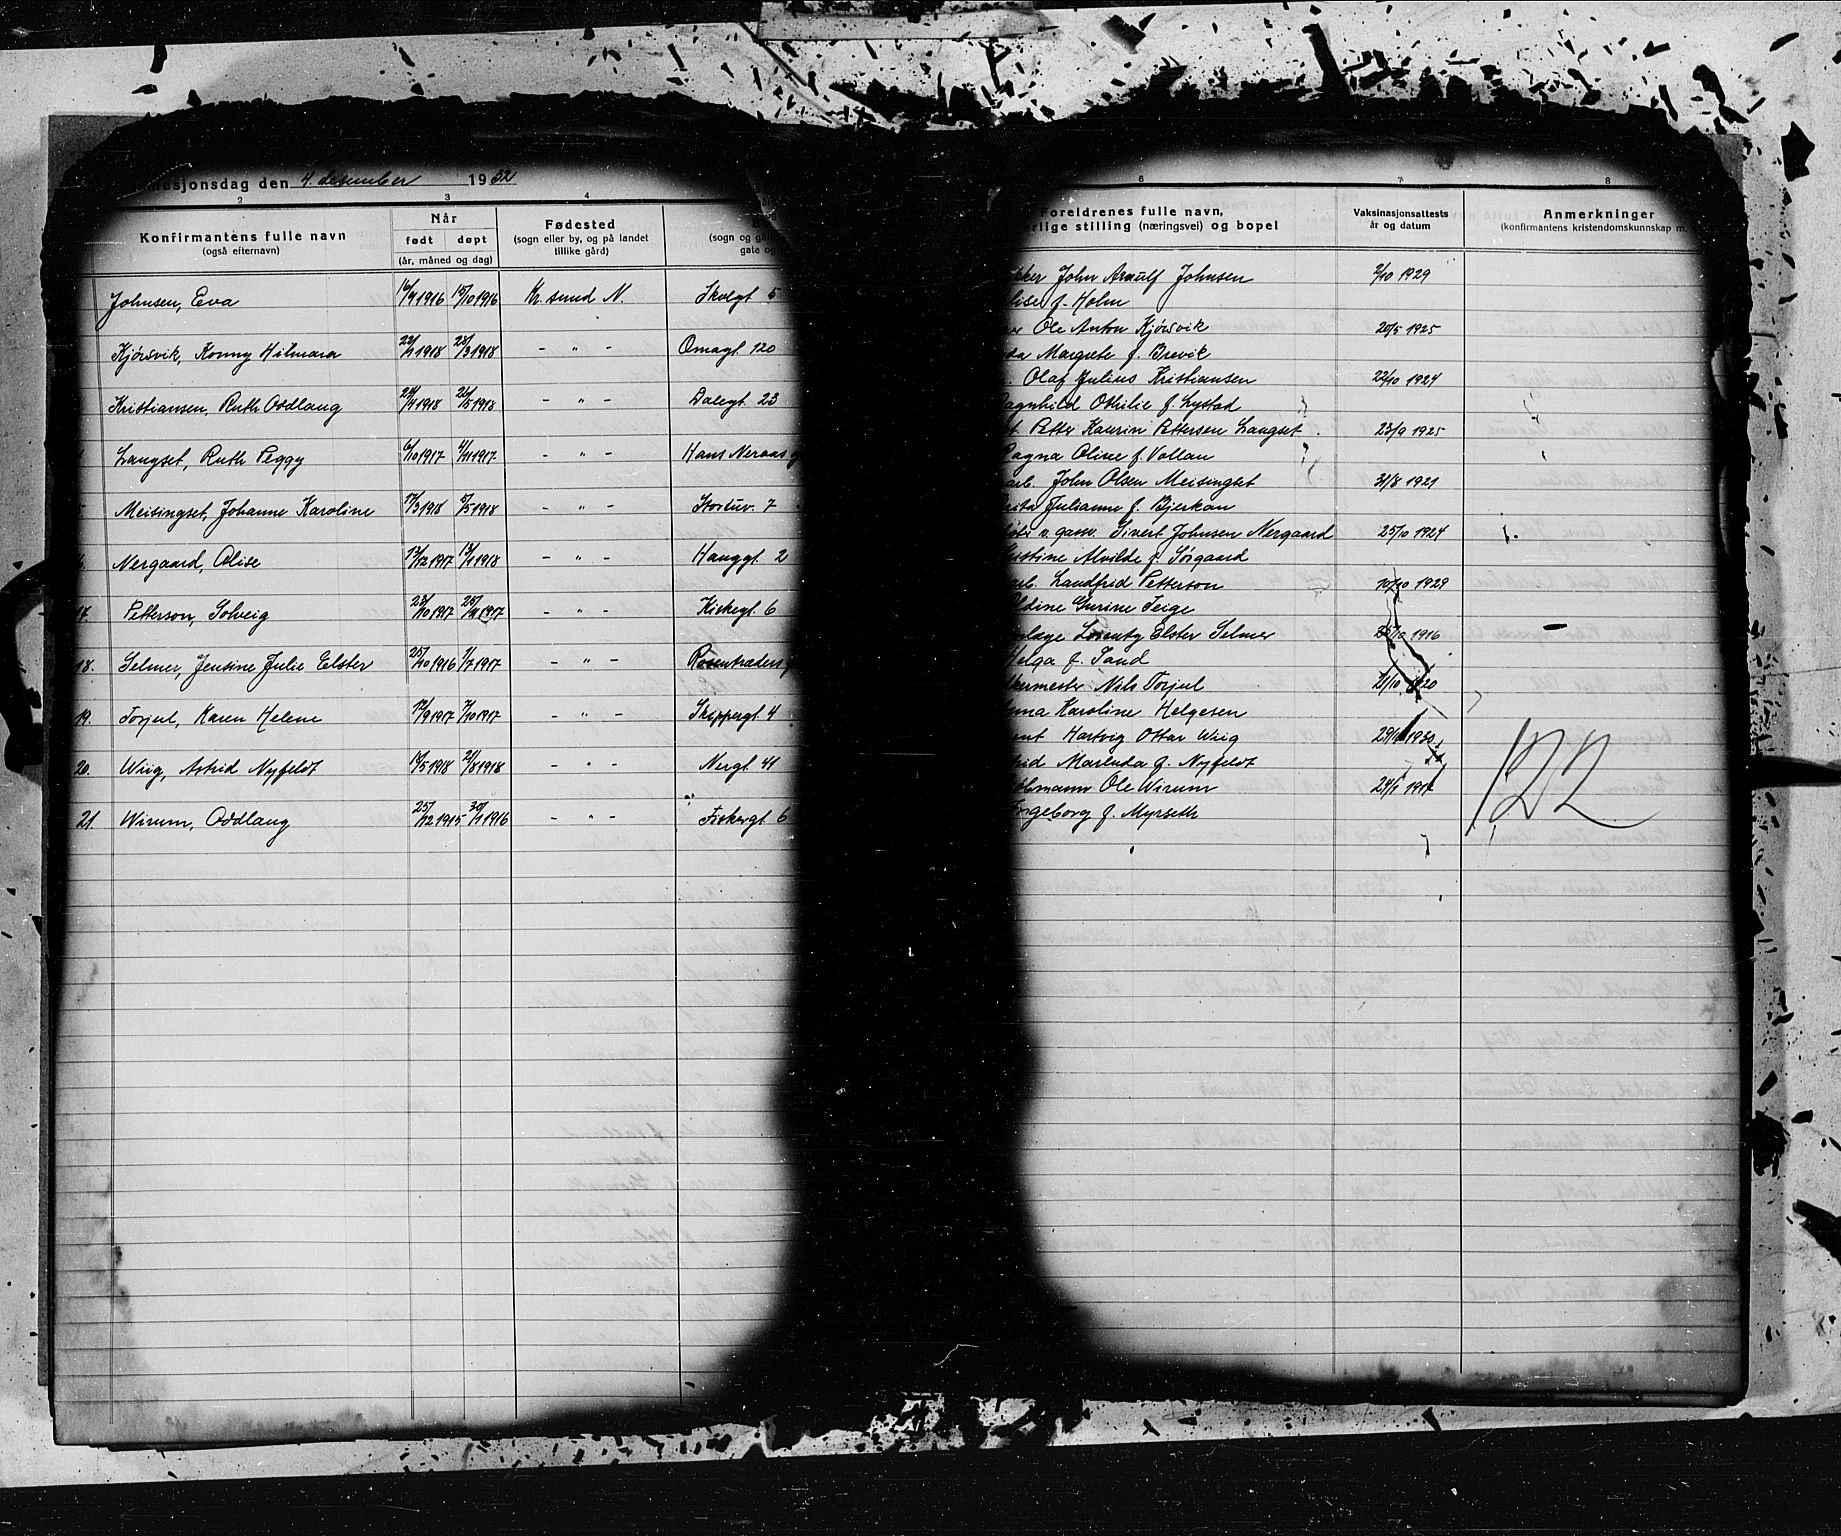 sjonsdag den 4. desember 1932
2 3 4
Konfirmantens fulle navn (også efternavn)
Når
født døpt
(år, måned og dag)
Fødested (sogn eller by, og på landet tillike gård)
(sogn og
gate og
Johnsen, Eva 16/9 1916 15/10 1916 Kr. sund N. Skolegt 5
Kjørsvik, Konny Hilmara 1918 1918 - " - Omagt. 120
Kristiansen, Ruth Oddlaug 1918 1918 - " - Dalegt. 23
Langset, Ruth Peggy 6/10 1917 4/11 1917 - " - Hans Neraas g
Meisingset, Johanne Karoline 17/3 1918 5/5 1918 - " - Stortuv. 7
Nergaard, Alise 13/12 1917 13/1 1918 - " - Hauggt 2
17. Petterson, Solveig 23/10 1917 25/11 1917 - " - Kirkegt. 6
18. Selmer, Jensine Julie Elster 25/10 1916 1/7 1917 - " -
19. Torjul, Karen Helene 17/9 1917 7/10 1917 - " - Skippergt. 4
20. Wiig, Astrid Nyfeldt 1918 1918 - " - Nergt 41
21. Wirum, Oddlaug 25/12 1915 30/1 1916 - " - Fiskergt 6
6 7 8
Foreldrenes fulle navn,
rlige stilling (næringsvei) og bopel
Vaksinasjonsattests år og datum
Anmerkninger
(konfirmantens kristendomskunnskap m.
kker John Arnulf Johnsen 2/10 1929
f. Holm
Ole Anton Kjørsvik 20/5 1925
da Margrete f. Brevik
Olaf Julius Kristiansen 22/10 1924
Ragnhild Othilie f. Lystad
Petter Kaurin Pettersen Langset 23/9 1925
Ragna Oline f. Vollan
arb. John Olsen Meisingset 31/8 1921
Julianne f. Bjerkan
v. gassv. Sivert Johnsen Nergaard 25/10 1924
Alvilde f. Sørgaard
arb. Landfrid Petterson 10/10 1929
Gurine Teige
læge Lorentz Elster Selmer 1916 -
Helga f. Sand
kermester Nils Torjul 1920
Karoline Helgesen
Hartvig Ottar Wiig 1930
f. Nyfeldt
Ole Wirum
Ingeborg f. Myrseth
122